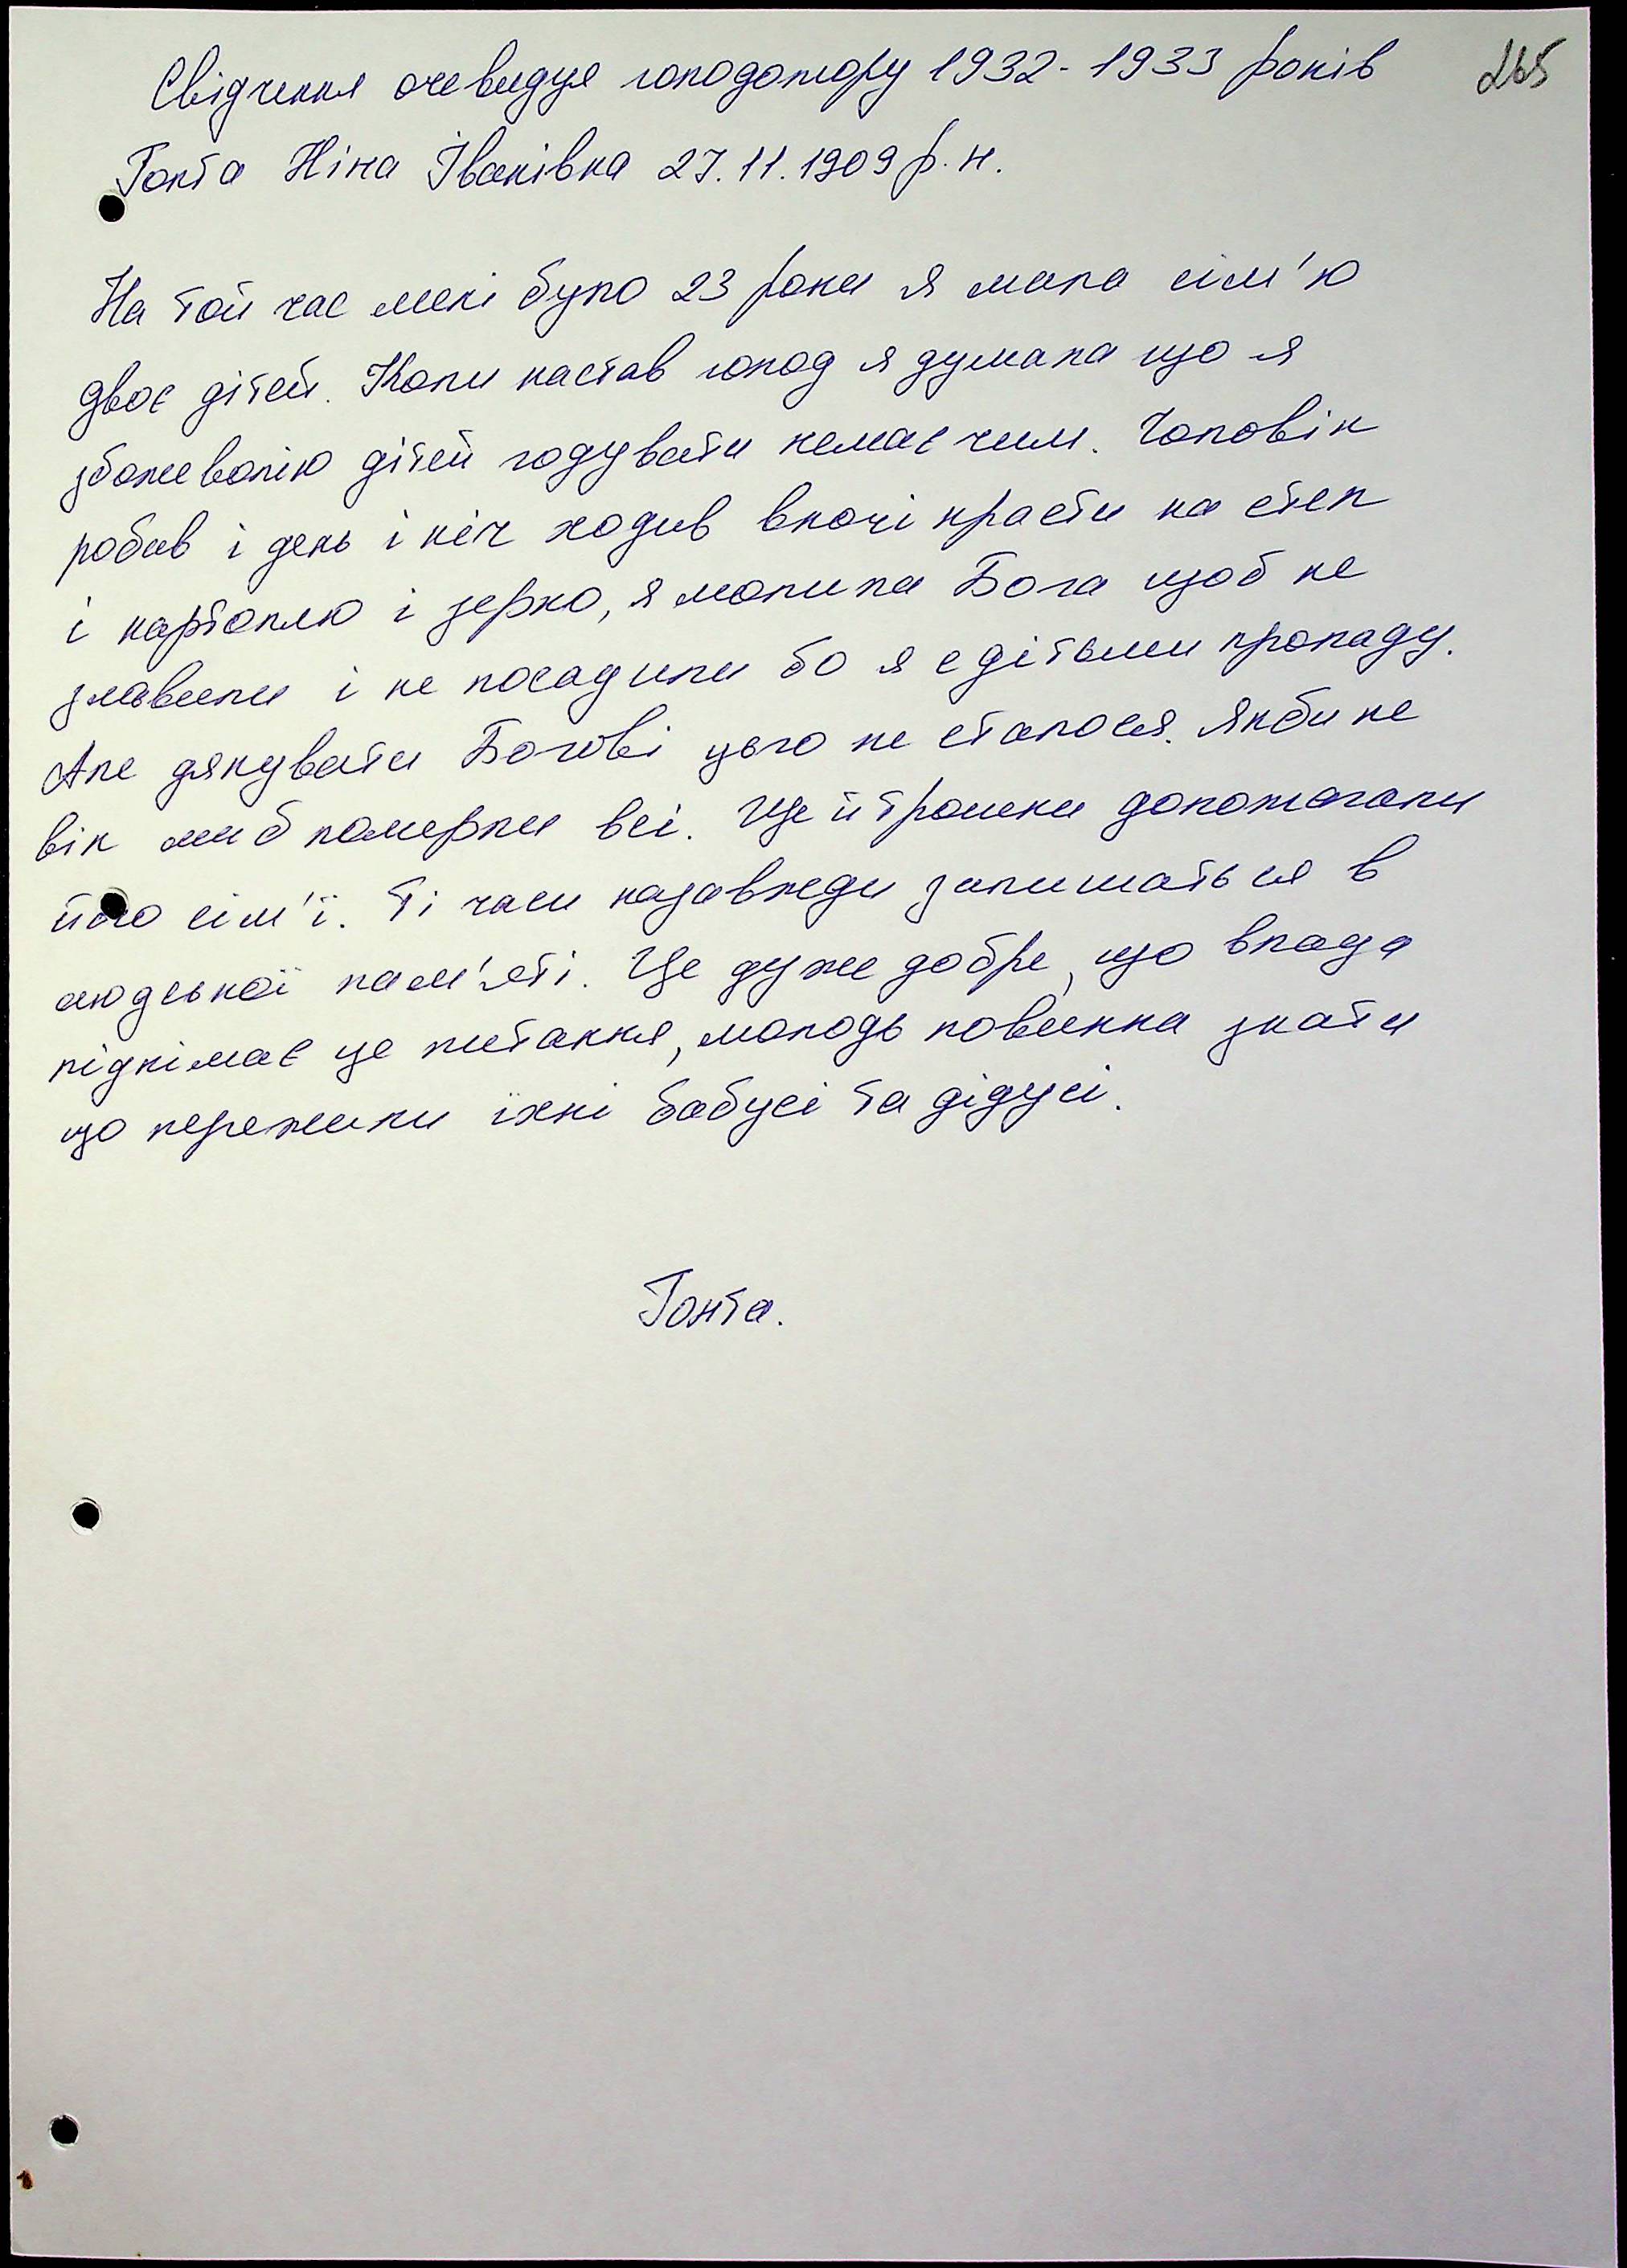 Свідчення очевидця голодомору 1932-1933 років
265
Гонта Ніна Іванівна 27.11.1909 р.н.
На той час мені було 23 роки я мала сім'ю
двоє дітей. Коли настав голод я думала що я
збожеволію дітей годувати немає чим. Чоловік
робив і день і ніч ходив вночі красти на степ
і картоплю і зерно, я молила Бога щоб не
зловили і не посадили бо я с дітьми пропаду.
Але дякувати Богові цього не сталося. Якби не
він ми б померли всі. Ще й трошки допомагали
його сім'ї. Ті часи назавжди залишаться в
людської пам'яті. Це дуже добре, що влада
піднімає це питання, молодь повинна знати
що пережили їхні бабусі та дідусі.
Гонта.